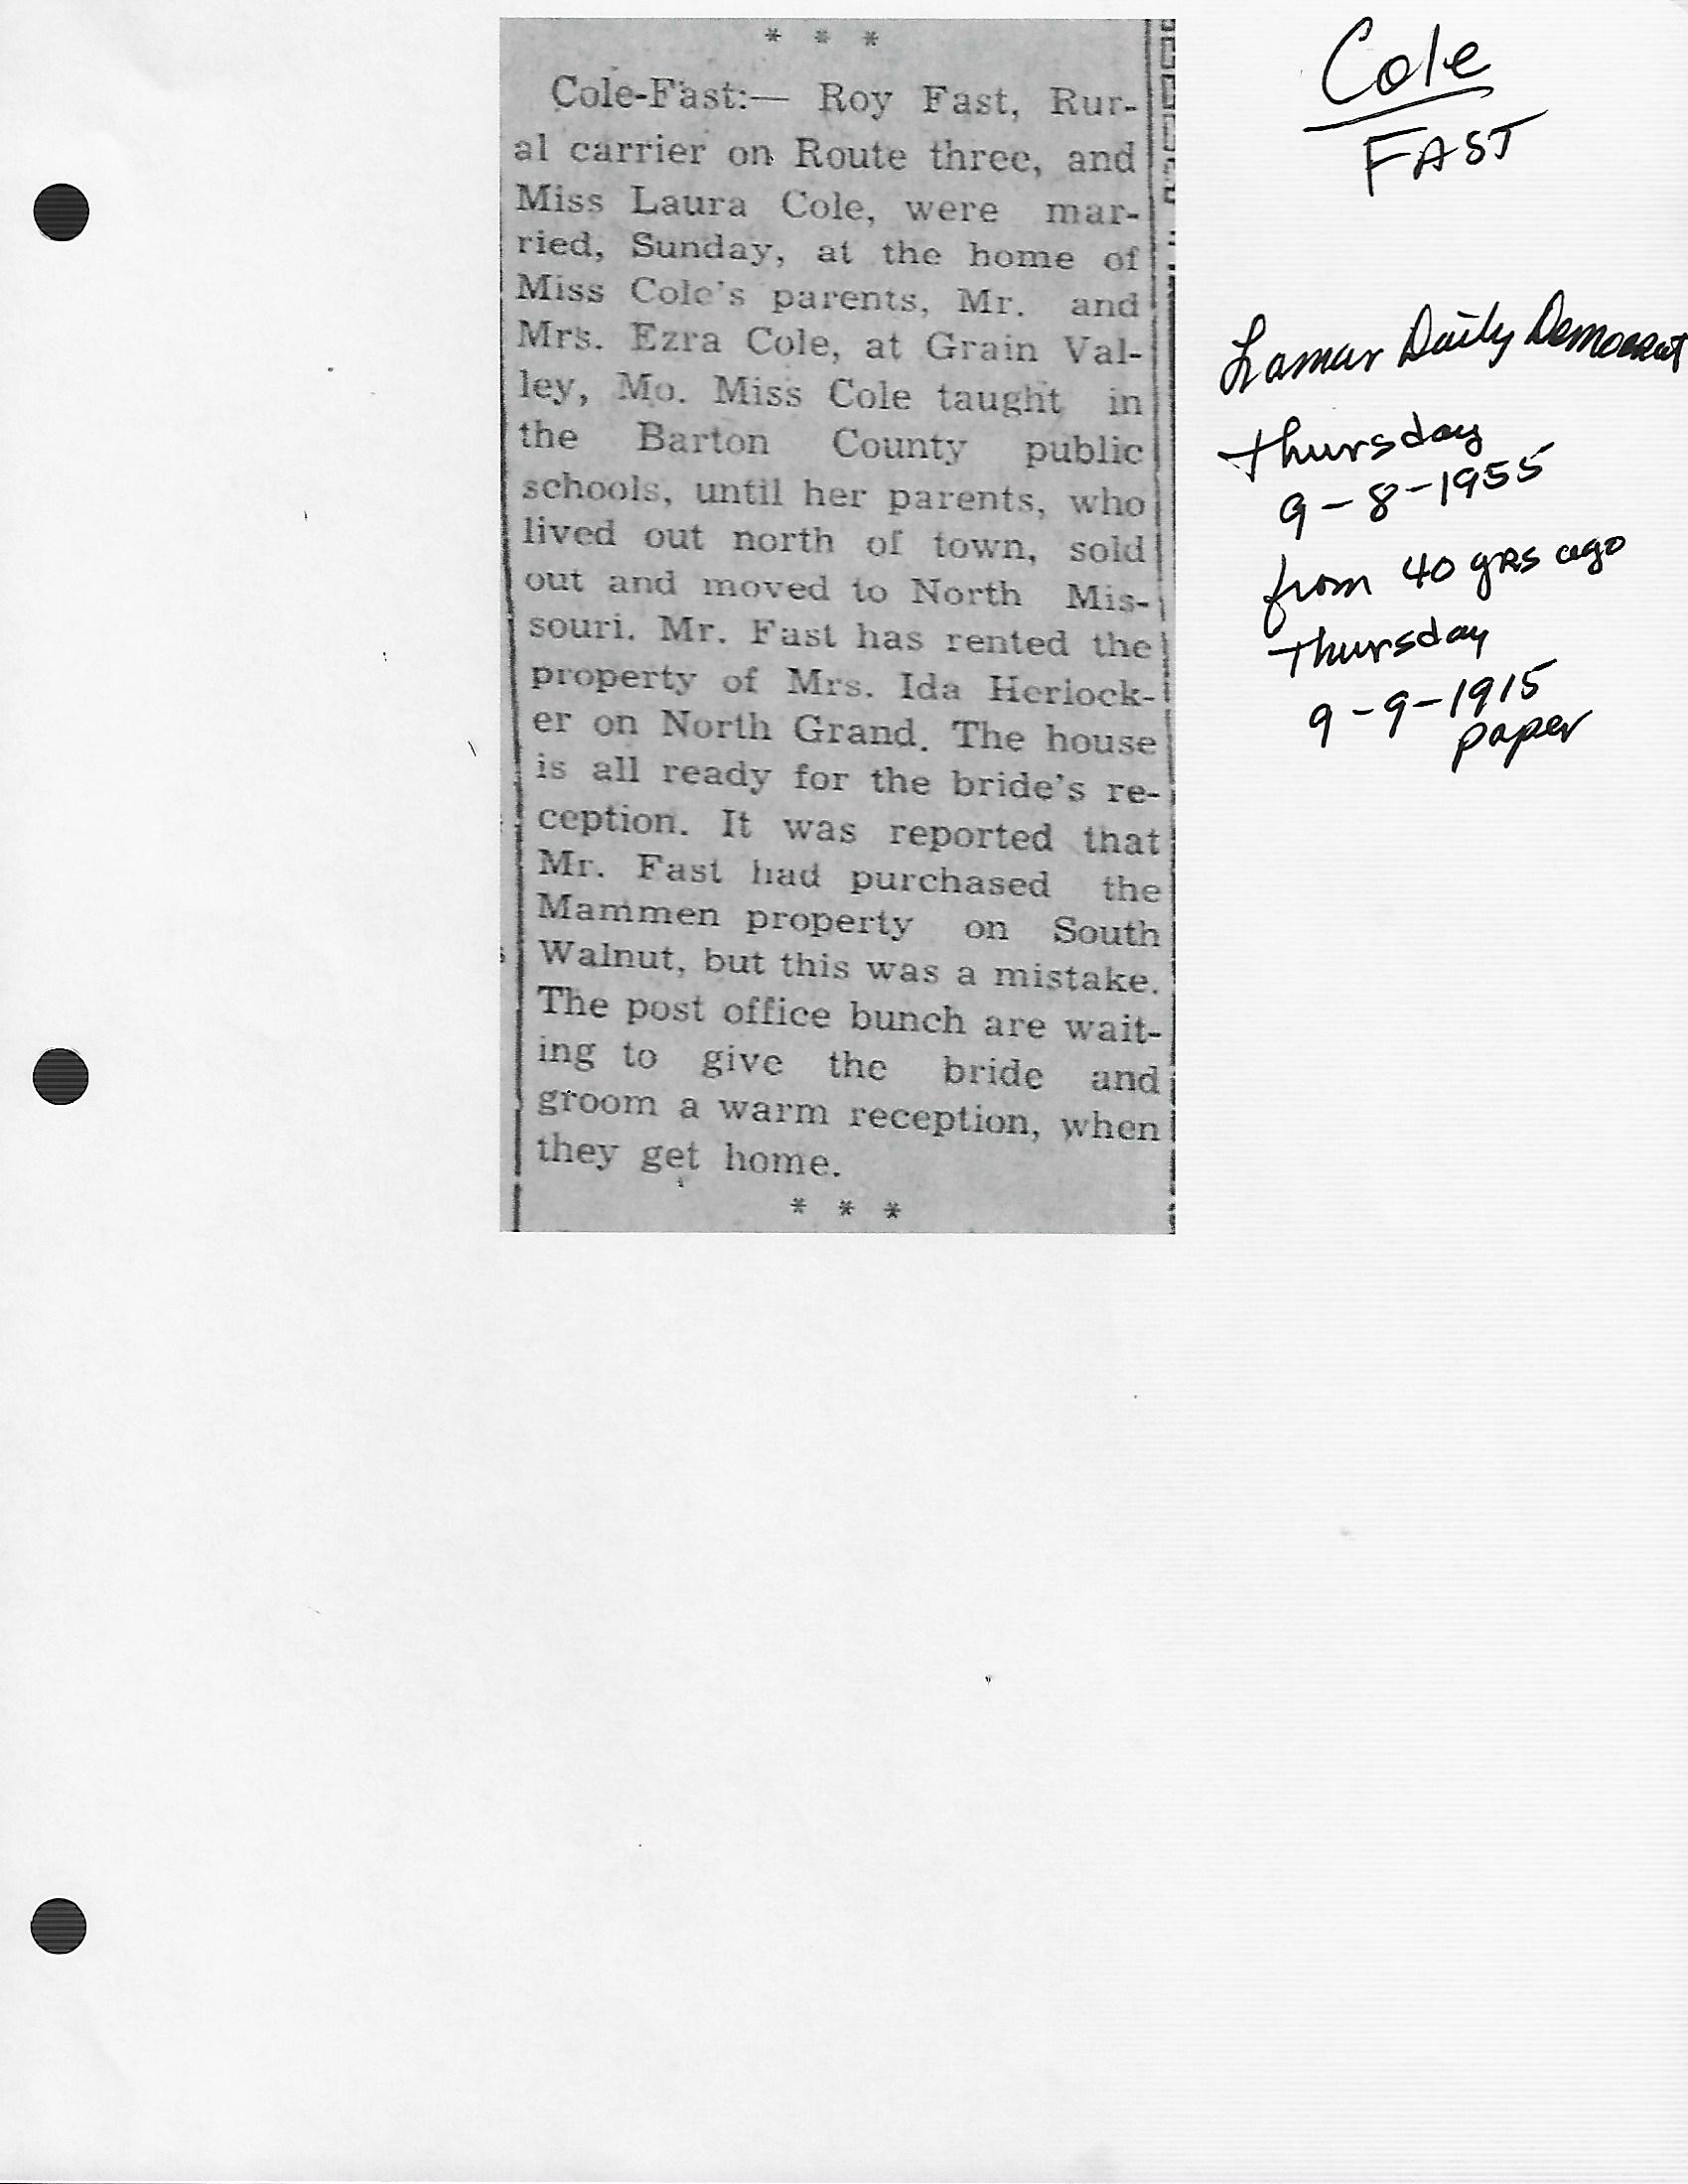 * * *
Cole-Fast:— Roy Fast, Rur-
al carrier on Route three, and
Miss Laura Cole, were mar-
ried, Sunday, at the home of
Miss Cole's parents, Mr. and
Mrs. Ezra Cole, at Grain Val-
ley, Mo. Miss Cole taught in
the Barton County public
schools, until her parents, who
lived out north of town, sold
out and moved to North Mis-
souri. Mr. Fast has rented the
property of Mrs. Ida Heriock-
er on North Grand. The house
is all ready for the bride's re-
ception. It was reported that
Mr. Fast had purchased the
Mammen property on South
Walnut, but this was a mistake.
The post office bunch are wait-
ing to give the bride and
groom a warm reception, when
they get home.
* * *
Cole
FAST
Lamar Daily Democrat
Thursday
9-8-1955
from 40 yrs ago
Thursday
9-9-1915
paper